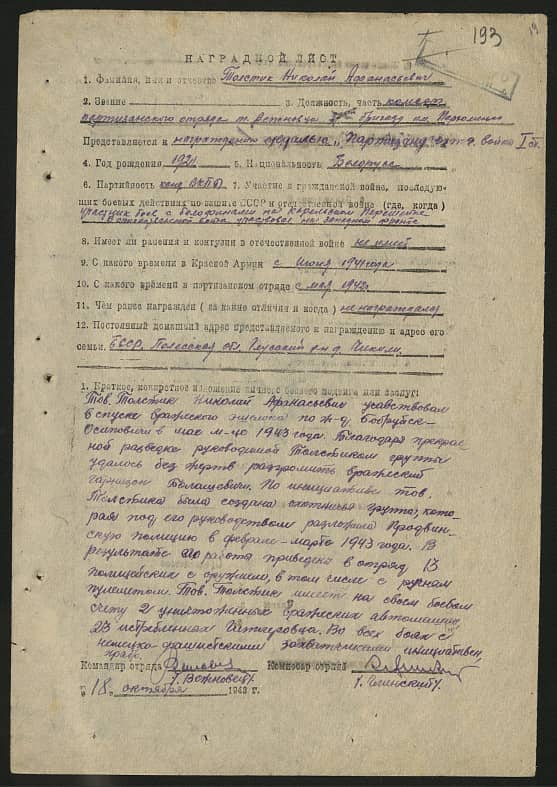 193
НАГРАДНОЙ ЛИСТ
1. Фамилия, имя и отчество Толстик Николай Афанасьевич
2. Звание 3. Должность, часть
партизанского отряда т.
Представляется к награждению медалью „Партизану от. войны I ст.
4. Год рождения 1921 5. Национальность Белорус
6. Партийность канд ВКП(б) 7. Участие в гражданской войне, последую-
щих боевых действиях по защите СССР и отечественной войне (где, когда)
участник боев с белофинами на Карельском Перешейке
В отечественной войне участвовал на западном фронте
8. Имеет ли ранения и контузии в отечественной войне не имеет
9. С какого времени в Красной Армии с Июня 1941 года
10. С какого времени в партизанском отряде с мая 1942г.
11. Чем ранее награжден (за какие отличия и когда) не награждался
12. Постоянный домашний адрес представляемого к награждению и адрес его
семьи. БССР. Полесская обл. Глусский р-н д.
1. Краткое, конкретное изложение личного боевого подвига или заслуг:
Тов. Толстик Николай Афанасьевич учавствовал
в спуске вражеского эшелона по ж-д. Бобруйск-
Осиповичи в мае м-це 1943 года. Благодаря прекрас
ной разведке руководимой Толстиком группы
удалось без жертв разгромить вражеский
гарнизон По инициативе тов.
Толстика была создана группа, кото-
рая под его руководством разложила
скую полицию в феврале-марте 1943 года. В
результате его работы приведено в отряд 13
полицейских с оружием, в том числе с ручным
пулеметом. Тов. Толстик имеет на своем боевом
счету 2 уничтоженных вражеских автомашин,
23 истребленных гитлеровца. Во всех боях с
немецко-фашистскими захватчиками инициативен,
Командир отряда Комиссар отряда
18 октября 1943 г.